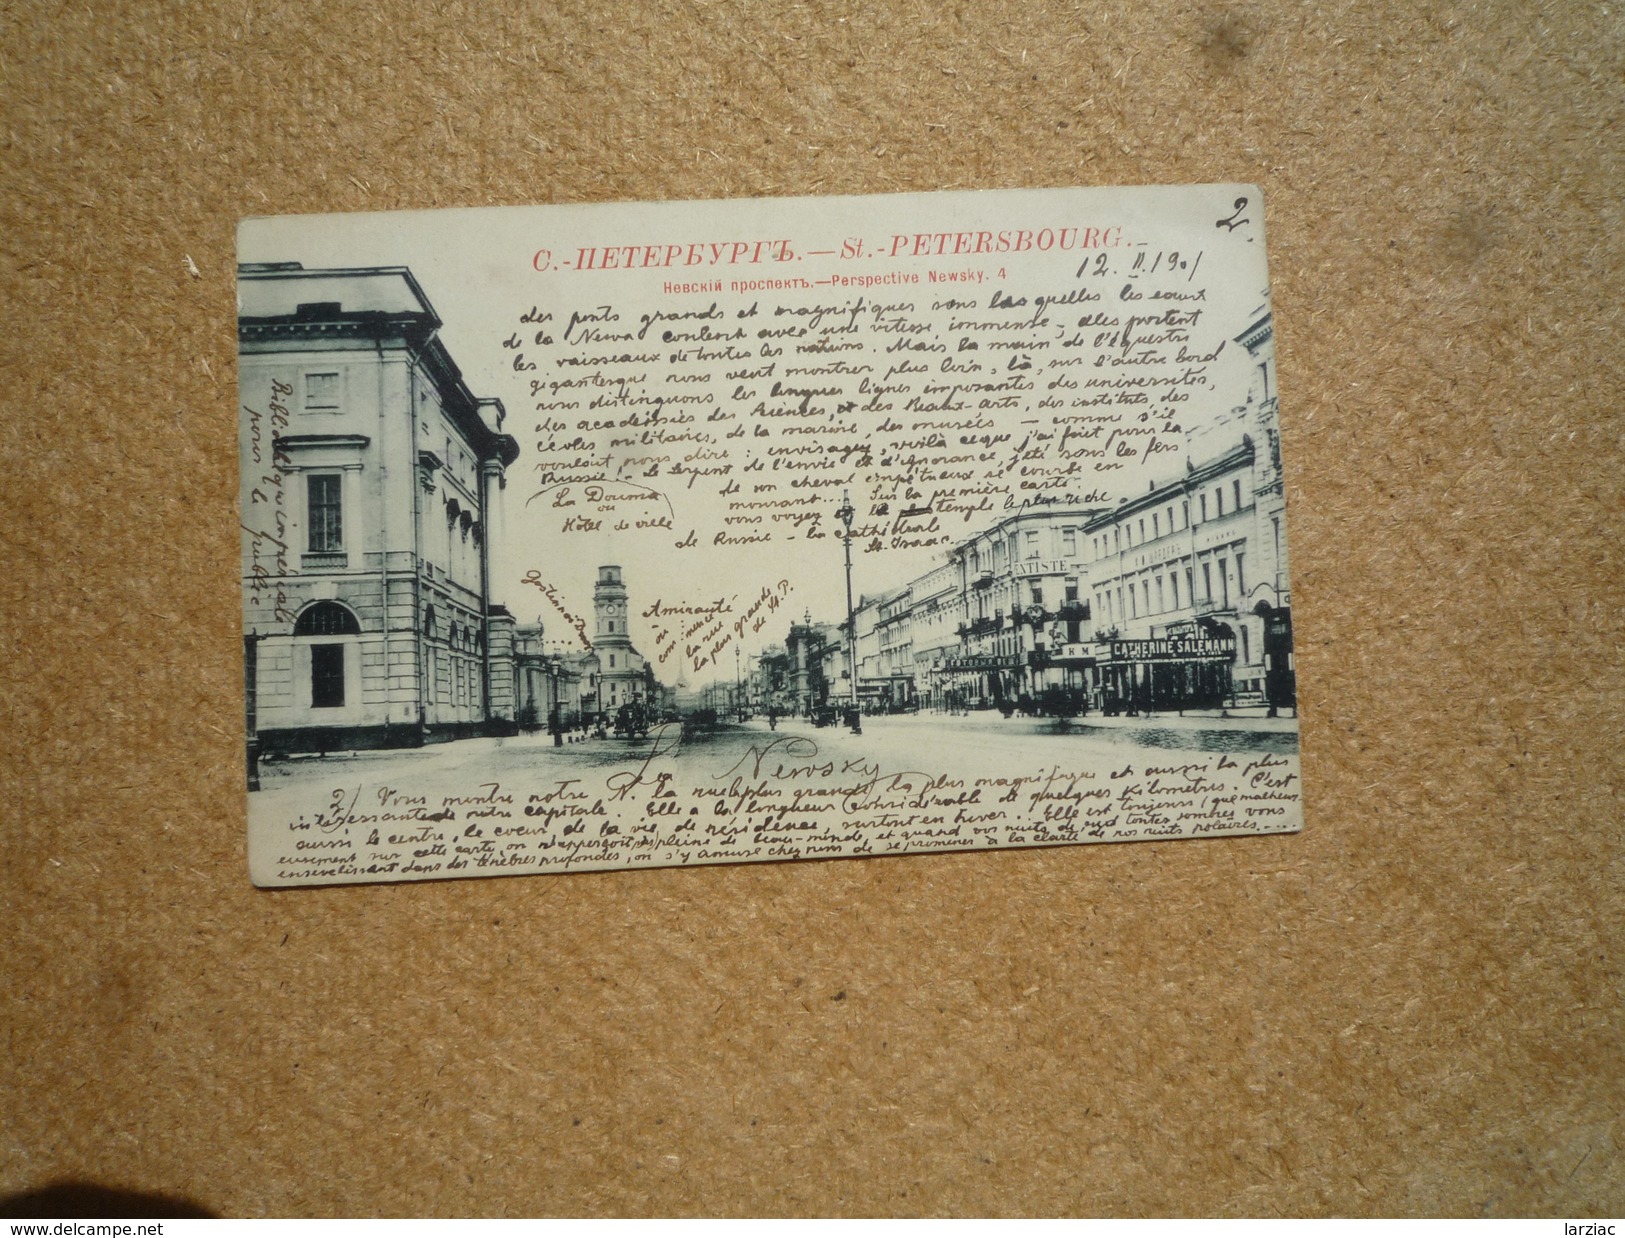 2
С.-ПЕТЕРБУРГЪ. — St.-PETERSBOURG.
Невскій проспектъ.—Perspective Newsky. 4
12. II. 1901
des ponts grands et magnifiques sous lesquelles les eaux
de la Newa coulent avec une vitesse immense, elles portent
les vaisseaux de toutes les nations. Mais la main de l'équestre
gigantesque nous veut montrer plus loin, là, sur l'autre bord
nous distinguons les longues lignes imposantes des universités,
des académies des sciences, et des Beaux-arts, des instituts, des
écoles militaires, de la marine, des musées — comme s'il
voulait nous dire: envisagez, voilà ce que j'ai fait pour la
Russie! - Le serpent de l'envie et d'ignorance, jeté sous les fers
de son cheval impétueux se courbe en
mourant... Sur la première carte
vous voyez le temple le plus riche
de Russie - la cathédrale
St. Isaac.
La Douma
ou
Hôtel de ville
Bibliothèque impériale
pour le public
Gostinnoi Dwor
Amirauté
où
commence
la rue
la plus grande
de St. P.
ATISTE
КМ
CATHERINE SALEMANN
La Newsky
2) Vous montre notre N. la rue la plus grande, la plus magnifique et aussi la plus
intéressante de notre capitale. Elle a la longueur considérable de quelques kilomètres. C'est
aussi le centre, le coeur de la vie, de résidence, surtout en hiver. Elle est toujours (que malheur-
eusement sur cette carte, on n'apperçoit pas) pleine de beau-monde, et quand vos nuits de sud toutes sombres vous
ensevelissent dans des ténèbres profondes, on s'y amuse chez nous de se promener à la clarté de nos nuits polaires.....
delcampe.net
larziac